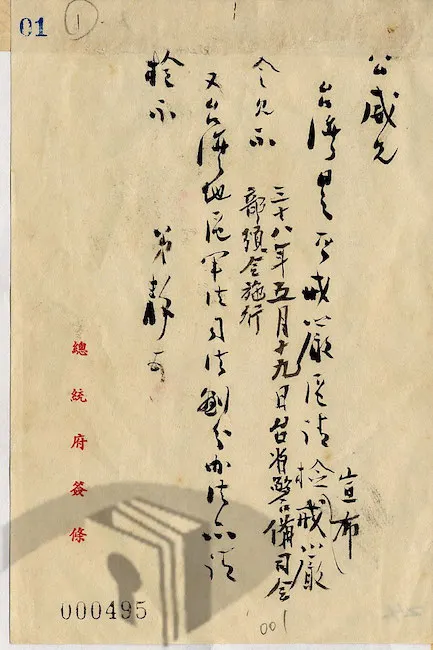 01
1
公威兄
台灣是否戒嚴區請檢戒嚴
宣布
令見示
三十八年五月十九日台省警備司令
部頒令施行
又台灣地區軍法司法劃分辦法亦請
檢示
弟靜
總統府簽條
000495
001